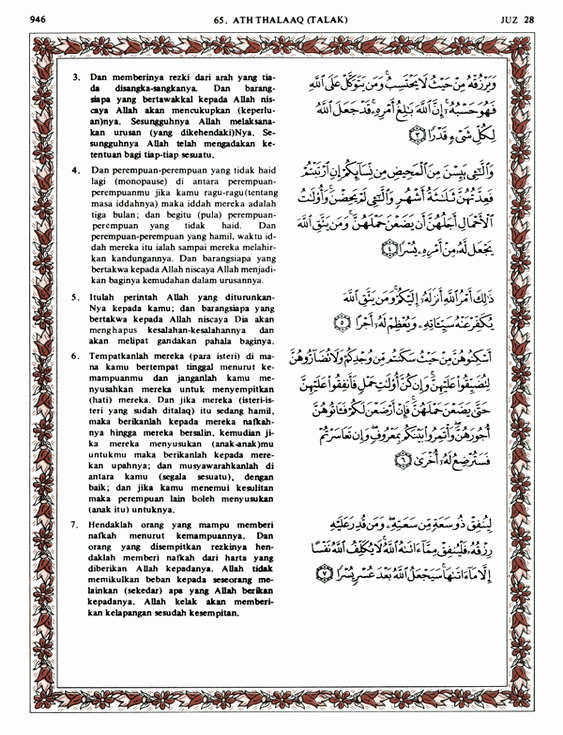 946
65. ATH THALAAQ (TALAK)
JUZ 28
3. Dan memberinya rezki dari arah yang tia-
da disangka-sangkanya. Dan barang-
siapa yang bertawakkal kepada Allah nis-
caya Allah akan mencukupkan (keperlu-
an)nya. Sesungguhnya Allah melaksana-
kan urusan (yang dikehendaki)Nya. Se-
sungguhnya Allah telah mengadakan ke-
tentuan bagi tiap-tiap sesuatu.
وَيَرْزُقْهُ مِنْ حَيْثُ لَا يَحْتَسِبُ ۚ وَمَن يَتَوَكَّلْ عَلَى ٱللَّهِ
فَهُوَ حَسْبُهُۥٓ ۚ إِنَّ ٱللَّهَ بَٰلِغُ أَمْرِهِۦ ۚ قَدْ جَعَلَ ٱللَّهُ
لِكُلِّ شَىْءٍ قَدْرًا ٣
4. Dan perempuan-perempuan yang tidak haid
lagi (monopause) di antara perempuan-
perempuanmu jika kamu ragu-ragu(tentang
masa iddahnya) maka iddah mereka adalah
tiga bulan; dan begitu (pula) perempuan-
perempuan yang tidak haid. Dan
perempuan-perempuan yang hamil, waktu id-
dah mereka itu ialah sampai mereka melahir-
kan kandungannya. Dan barangsiapa yang
bertakwa kepada Allah niscaya Allah menjadi-
kan baginya kemudahan dalam urusannya.
وَٱلَّٰٓـِٔى يَئِسْنَ مِنَ ٱلْمَحِيضِ مِن نِّسَآئِكُمْ إِنِ ٱرْتَبْتُمْ
فَعِدَّتُهُنَّ ثَلَٰثَةُ أَشْهُرٍ وَٱلَّٰٓـِٔى لَمْ يَحِضْنَ ۚ وَأُو۟لَٰتُ
ٱلْأَحْمَالِ أَجَلُهُنَّ أَن يَضَعْنَ حَمْلَهُنَّ ۚ وَمَن يَتَّقِ ٱللَّهَ
يَجْعَل لَّهُۥ مِنْ أَمْرِهِۦ يُسْرًا ٤
5. Itulah perintah Allah yang diturunkan-
Nya kepada kamu; dan barangsiapa yang
bertakwa kepada Allah niscaya Dia akan
menghapus kesalahan-kesalahannya dan
akan melipat gandakan pahala baginya.
ذَٰلِكَ أَمْرُ ٱللَّهِ أَنزَلَهُۥٓ إِلَيْكُمْ ۚ وَمَن يَتَّقِ ٱللَّهَ
يُكَفِّرْ عَنْهُ سَيِّـَٔاتِهِۦ وَيُعْظِمْ لَهُۥٓ أَجْرًا ٥
6. Tempatkanlah mereka (para isteri) di ma-
na kamu bertempat tinggal menurut ke-
mampuanmu dan janganlah kamu me-
nyusahkan mereka untuk menyempitkan
(hati) mereka. Dan jika mereka (isteri-is-
teri yang sudah ditalaq) itu sedang hamil,
maka berikanlah kepada mereka nafkah-
nya hingga mereka bersalin, kemudian ji-
ka mereka menyusukan (anak-anak)mu
untukmu maka berikanlah kepada mere-
kan upahnya; dan musyawarahkanlah di
antara kamu (segala sesuatu), dengan
baik; dan jika kamu menemui kesulitan
maka perempuan lain boleh menyusukan
(anak itu) untuknya.
أَسْكِنُوهُنَّ مِنْ حَيْثُ سَكَنتُم مِّن وُجْدِكُمْ وَلَا تُضَآرُّوهُنَّ
لِتُضَيِّقُوا۟ عَلَيْهِنَّ ۚ وَإِن كُنَّ أُو۟لَٰتِ حَمْلٍ فَأَنفِقُوا۟ عَلَيْهِنَّ
حَتَّىٰ يَضَعْنَ حَمْلَهُنَّ ۚ فَإِنْ أَرْضَعْنَ لَكُمْ فَـَٔاتُوهُنَّ
أُجُورَهُنَّ ۖ وَأْتَمِرُوا۟ بَيْنَكُم بِمَعْرُوفٍ ۖ وَإِن تَعَاسَرْتُمْ
فَسَتُرْضِعُ لَهُۥٓ أُخْرَىٰ ٦
7. Hendaklah orang yang mampu memberi
nafkah menurut kemampuannya. Dan
orang yang disempitkan rezkinya hen-
daklah memberi nafkah dari harta yang
diberikan Allah kepadanya. Allah tidak
memikulkan beban kepada seseorang me-
lainkan (sekedar) apa yang Allah berikan
kepadanya. Allah kelak akan memberi-
kan kelapangan sesudah kesempitan.
لِيُنفِقْ ذُو سَعَةٍ مِّن سَعَتِهِۦ ۖ وَمَن قُدِرَ عَلَيْهِ
رِزْقُهُۥ فَلْيُنفِقْ مِمَّآ ءَاتَىٰهُ ٱللَّهُ ۚ لَا يُكَلِّفُ ٱللَّهُ نَفْسًا
إِلَّا مَآ ءَاتَىٰهَا ۚ سَيَجْعَلُ ٱللَّهُ بَعْدَ عُسْرٍ يُسْرًا ٧